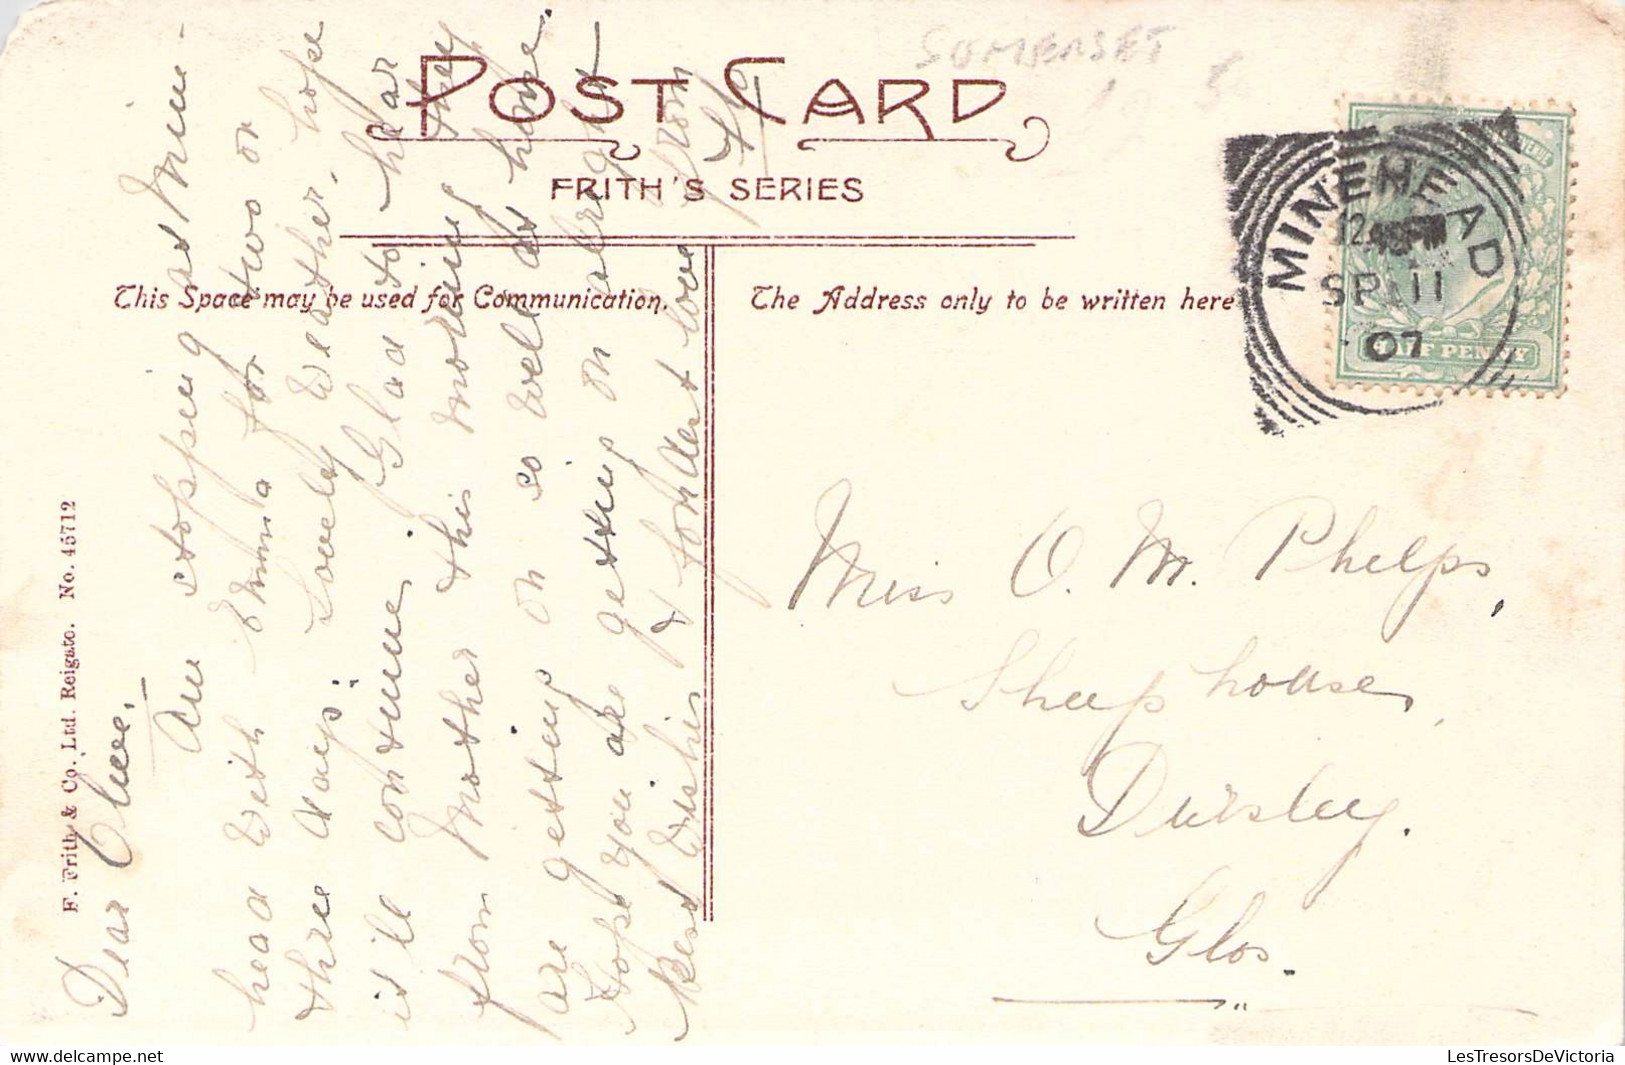 SOMERSET
POST CARD
FRITH'S SERIES
This Space may be used for Communication.
The Address only to be written here
MINEHEAD
SP 11
07
HALF PENNY
Miss O. M. Phelps,
Sheep house,
Dursley.
Glos.
F. Frith & Co. Ltd. Reigate. No. 45712
Dear Olive,
Am stopping at Mine-
head with Emma for two or
three days. Lovely weather, hope
it'll continue. Glad to hear
from Mother this morning they
are getting on so well at home.
Hope you are getting on alright
Best wishes & fondest love from
LesTresorsDeVictoria
https://www.delcampe.net